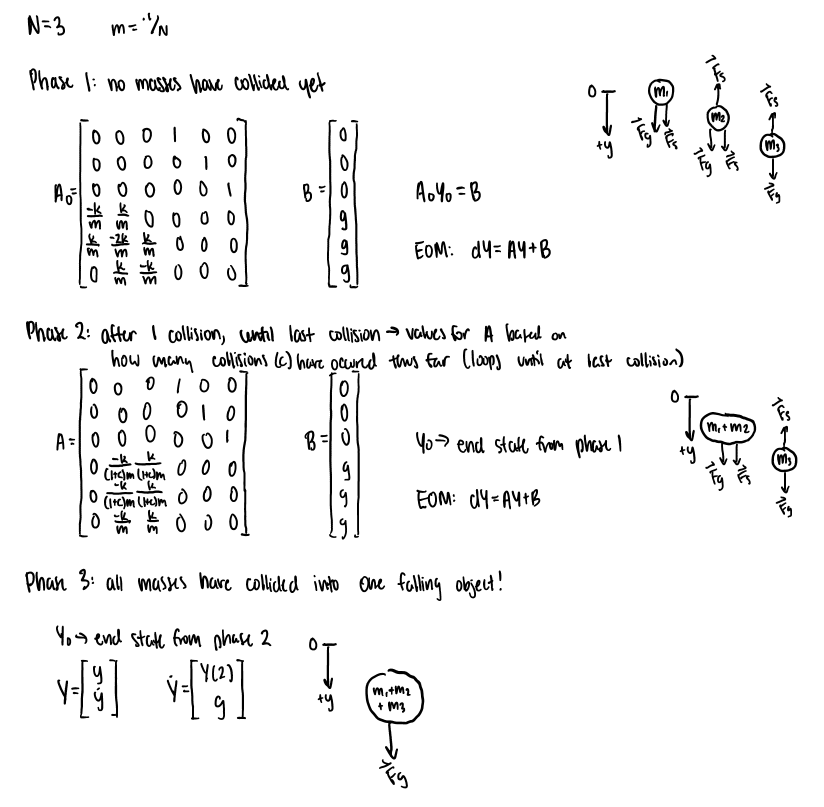 N=3 m=1/N
Phase 1: no masses have collided yet
A₀=
0 0 0 1 0 0
0 0 0 0 1 0
0 0 0 0 0 1
-k/m k/m 0 0 0 0
k/m -2k/m k/m 0 0 0
0 k/m -k/m 0 0 0
B=
0
0
0
g
g
g
A₀Y₀=B
EOM: dY=AY+B
0
+y
m₁
Fg Fs
Fs
m₂
Fg Fs
Fs
m₃
Fg
Phase 2: after 1 collision, until last collision → values for A based on
how many collisions (c) have occured thus far (loops until at last collision)
A=
0 0 0 1 0 0
0 0 0 0 1 0
0 0 0 0 0 1
0 -k/(1+c)m k/(1+c)m 0 0 0
0 -k/(1+c)m k/(1+c)m 0 0 0
0 k/m -k/m 0 0 0
B=
0
0
0
g
g
g
Y₀→ end state from phase 1
EOM: dY=AY+B
0
+y
m₁+m₂
Fg Fs
Fs
m₃
Fg
Phase 3: all masses have collided into one falling object!
Y₀→ end state from phase 2
Y=
y
ẏ
Ẏ=
Y(2)
g
0
+y
m₁+m₂
+m₃
Fg